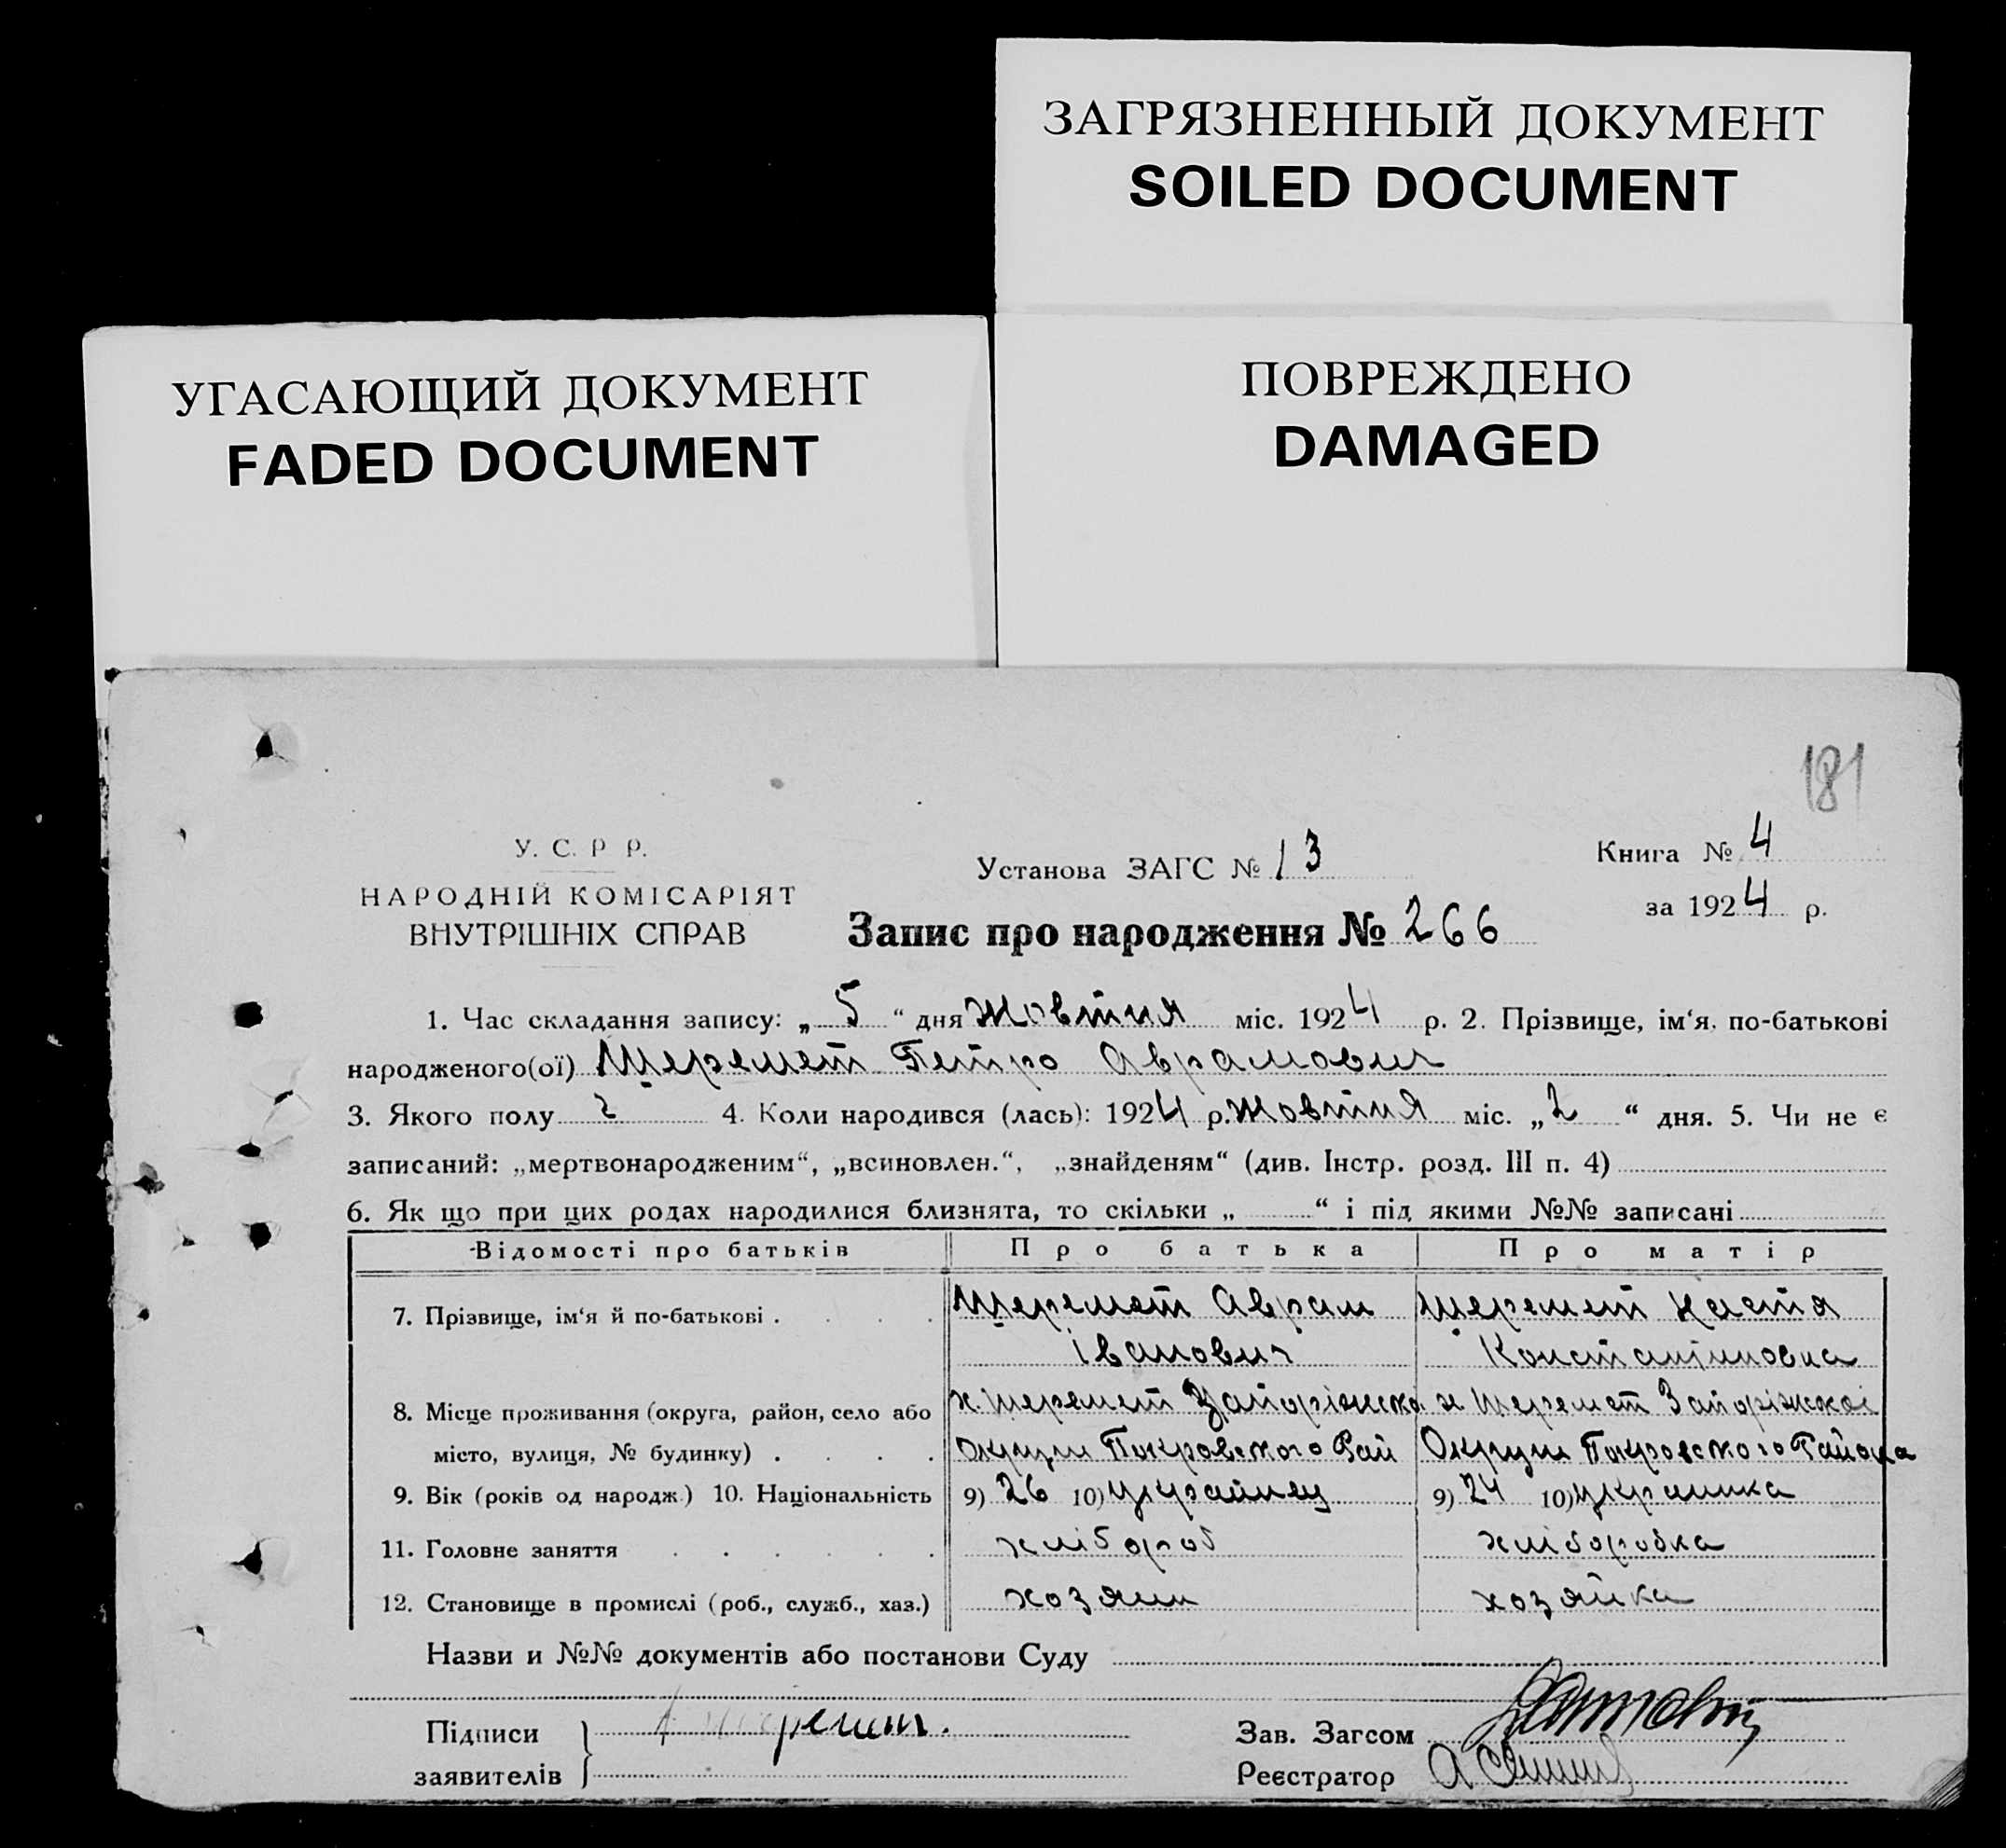 ЗАГРЯЗНЕННЫЙ ДОКУМЕНТ
SOILED DOCUMENT
УГАСАЮЩИЙ ДОКУМЕНТ
FADED DOCUMENT
ПОВРЕЖДЕНО
DAMAGED
181
У. С. Р Р.
НАРОДНІЙ КОМІСАРІЯТ
ВНУТРІШНІХ СПРАВ
Установа ЗАГС № 13
Запис про народження № 266
Книга № 4
за 1924 р.
1. Час складання запису: „ 5 “ дня Жовтня міс. 1924 р. 2. Прізвище, ім‘я, по-батькові
народженого(ої) Шеремет Петро Аврамович
3. Якого полу ч 4. Коли народився (лась): 1924 р. Жовтня міс. „ 2 “ дня. 5. Чи не є
записаний: „мертвонародженим“, „всиновлен.“, „знайденям“ (див. Інстр. розд. III п. 4)
6. Як що при цих родах народилися близнята, то скільки „ “ і під якими №№ записані
Відомості про батьків Про батька Про матір
7. Прізвище, ім‘я й по-батькові . . . . Шеремет Аврам Шеремет Настя
Іванович Константіновна
8. Місце проживання (округа, район, село або х. Шеремет Запоріжско х Шеремет Запоріжскоі
місто, вулиця, № будинку) . . . . Округи Покровского Рай Округи Покровского Района
9. Вік (років од народж.) 10. Національність 9) 26 10) Украйнец 9) 24 10) Украинка
11. Головне заняття . . . . . . хлібороб хліборобка
12. Становище в промислі (роб., служб., хаз.) хозяин хозяйка
Назви и №№ документів або постанови Суду
Підписи Шеремет. Зав. Загсом
заявителів Реєстратор